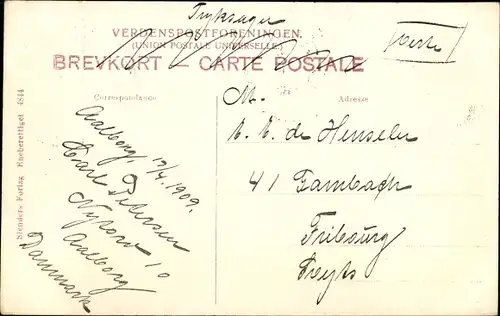 Tryksager
VERDENSPOSTFORENINGEN.
(UNION POSTALE UNIVERSELLE)
BREVKORT — CARTE POSTALE
Correspondance
Adresse
Stenders Forlag Eneberettiget 4844
Aalborg, 13/4 1909.
Carl Petersen
Nytorv 10
Aalborg
Danmark
M.
de Henseler
41 Gambach
Fribourg